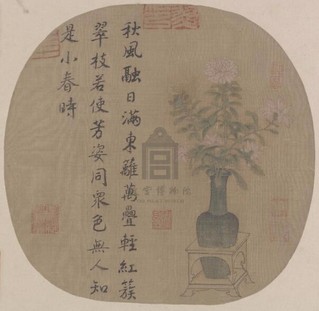 秋風融日滿東籬萬疊輕紅蔟
翠枝若使芳姿同眾色無人知
是小春時